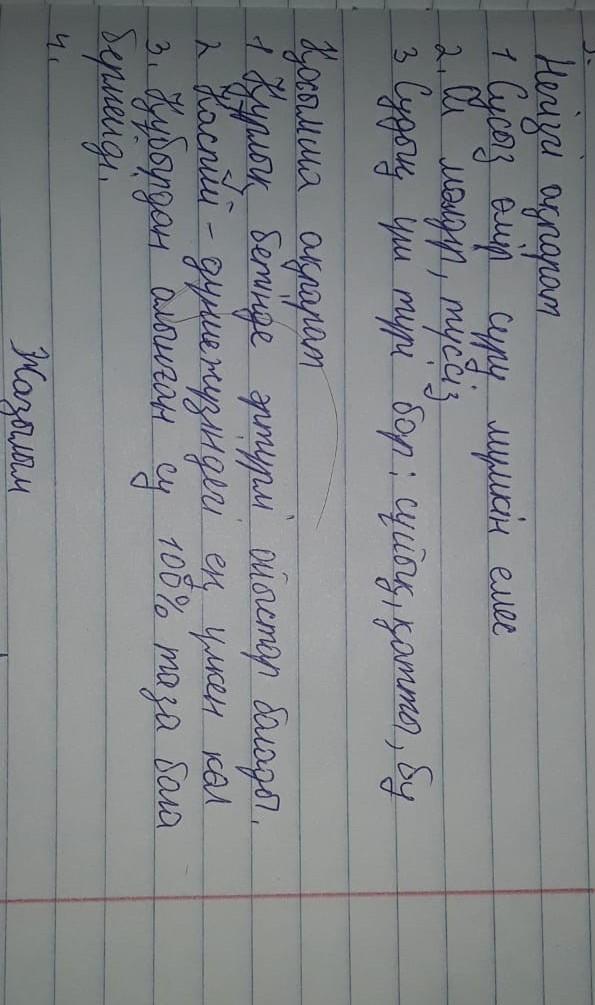 Негізгі ақпарат
1 Сусыз өмір сүру мүмкін емес
2. Ол мөлдір, түссіз
3 Судың үш түрі бар: сұйық, қатты, бу
Қосымша ақпарат
1 Құрлық бетінде әртүрлі ойыстар болады.
2 Каспий - дүниежүзіндегі ең үлкен көл
3. Құбырдан алынған су 100% таза бола
бермейді.
4.
Жазылым